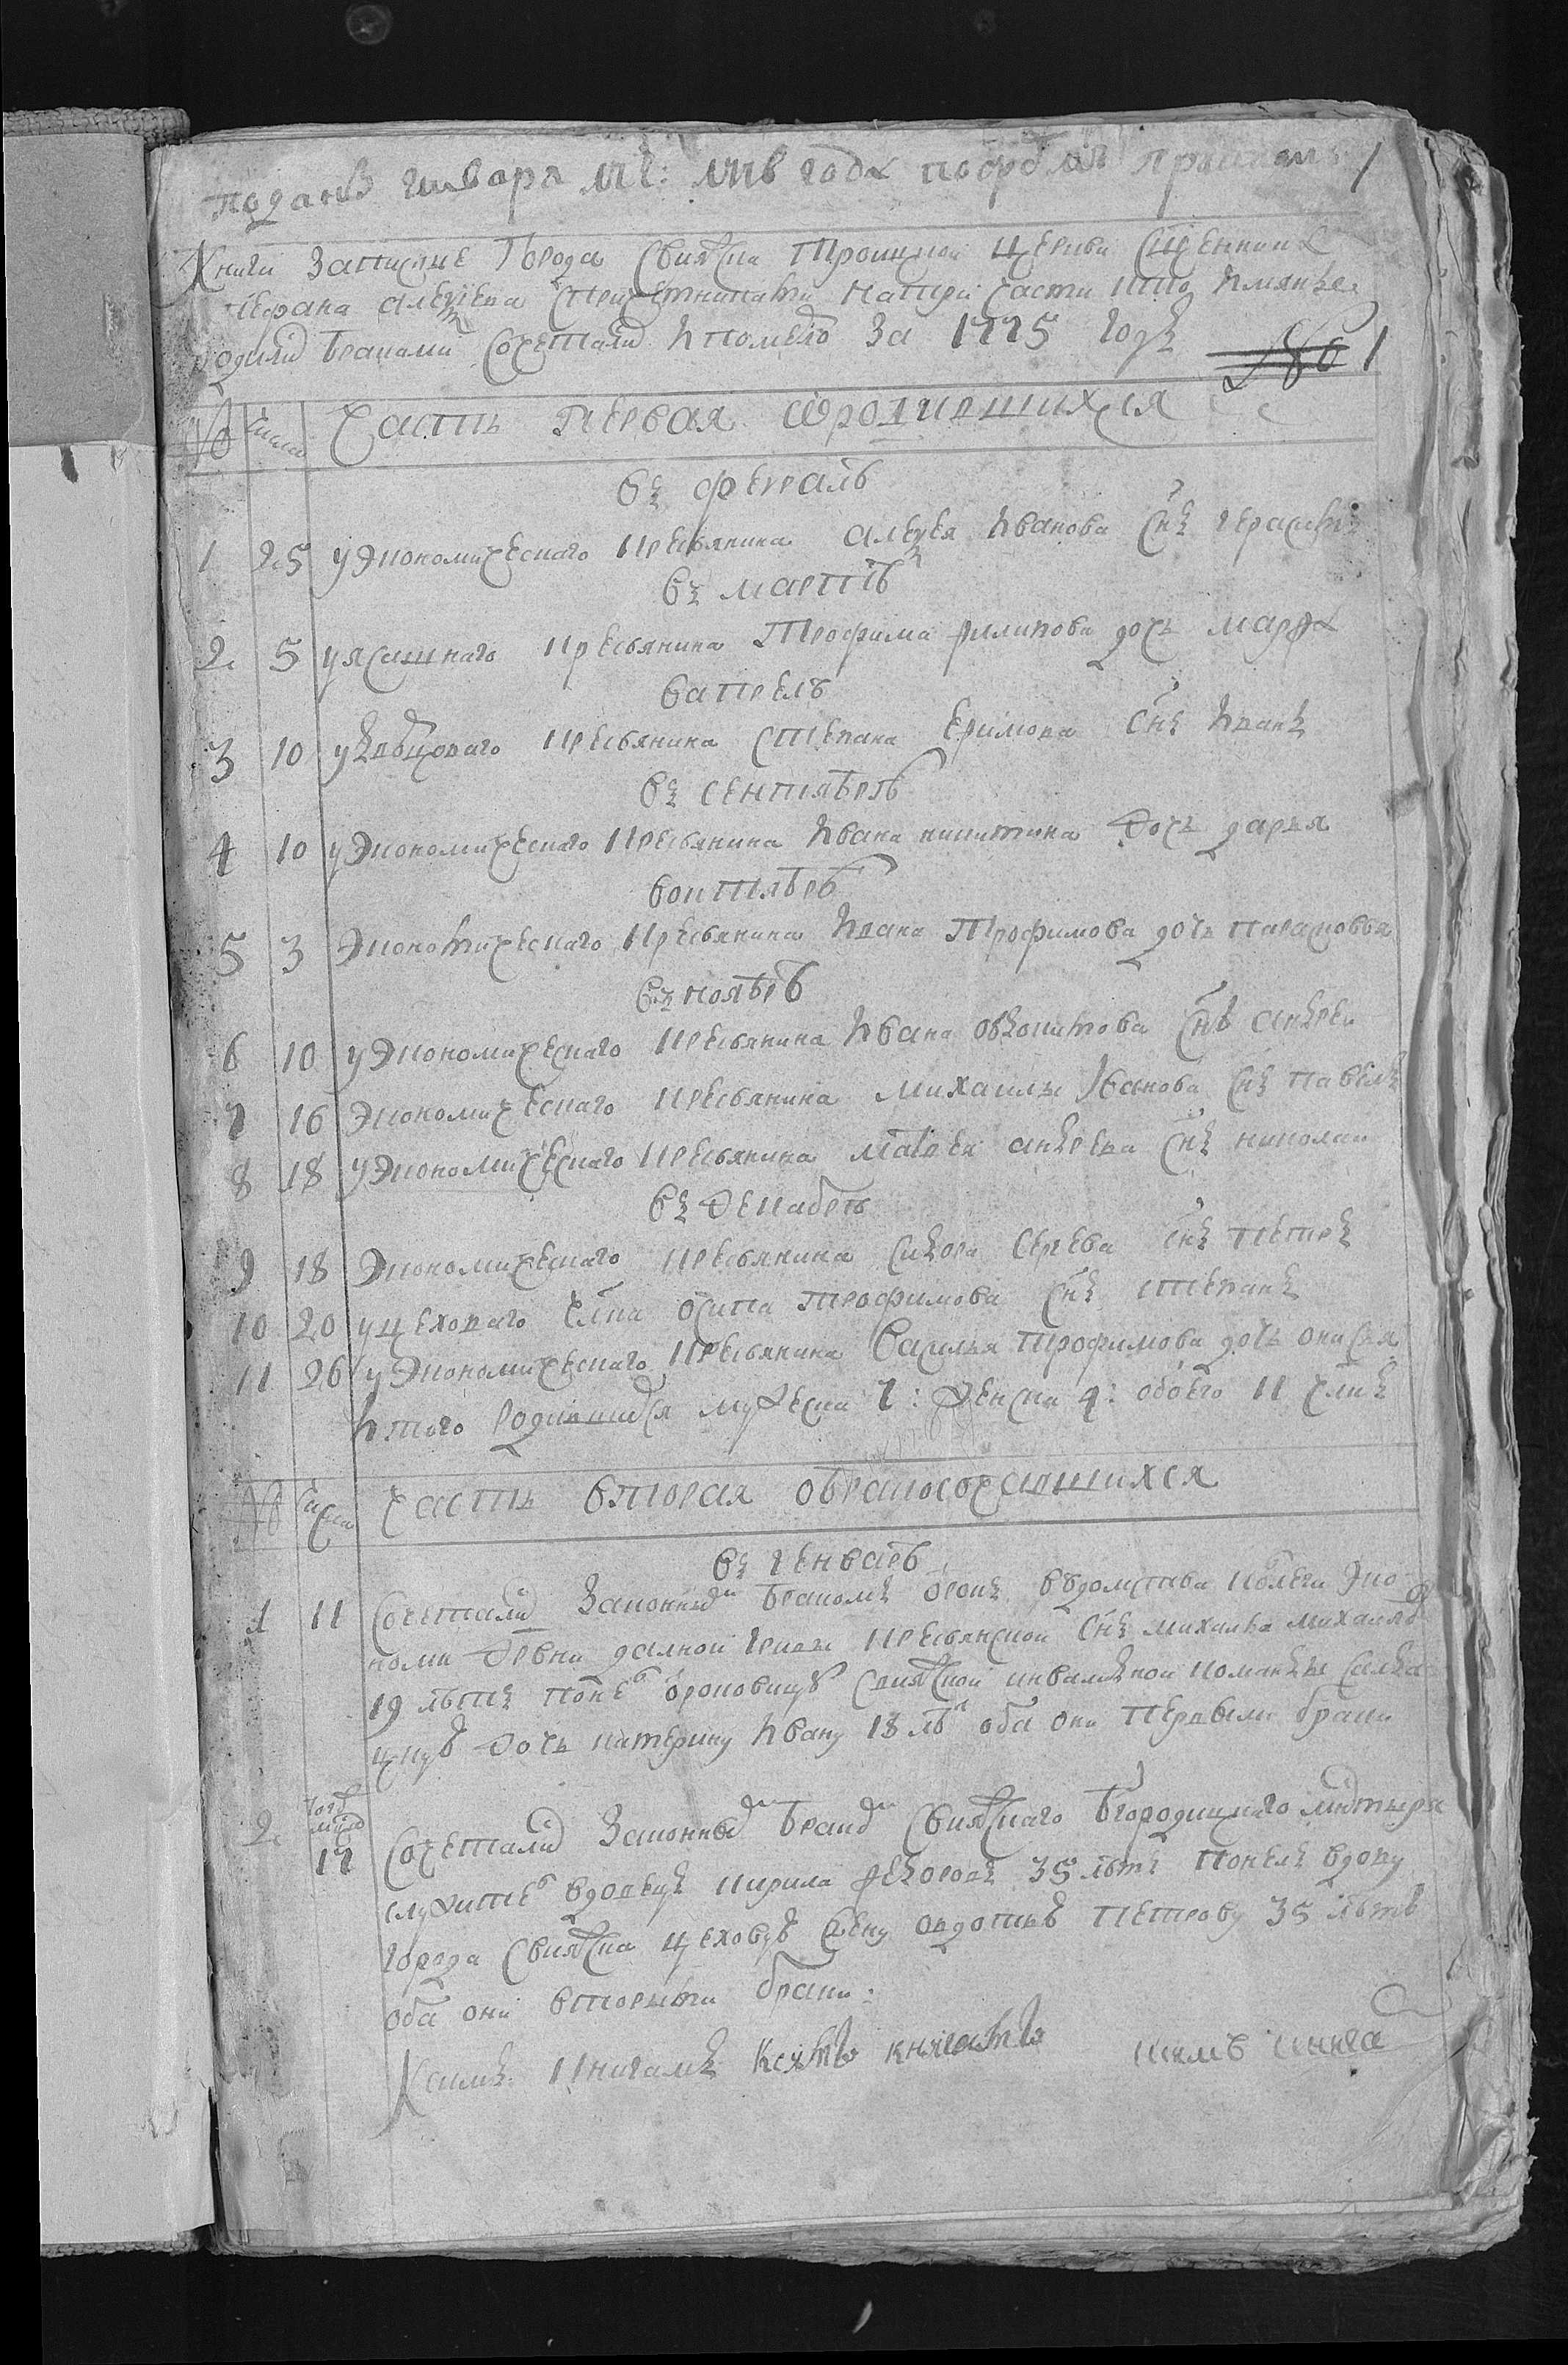 поданъ генваря 1776 года
1
Книги записные города Свияжска Троицкой церкви священника
алексеева натри части кто имянно
родились браками сочетались и померло за 1775 годъ
1
№ числа часть первая ородившихся
въ феврале
1 25 у экономическаго крестьянина алексея иванова снъ герасимъ
въ марте
2 5 у ясашнаго крестьянина трофима филипова дочь марфа
в апреле
3 10 крестьянина степана ефимова снъ иванъ
въ сентябре
4 10 у экономическаго крестьянина ивана никитина дочь дарья
в октябре
5 3 экономическаго крестьянина ивана трофимова дочь парасковья
въ ноябре
6 10 у экономическаго крестьянина ивана снъ андреи
7 16 экономическаго крестьянина михаилы иванова снъ павелъ
8 18 у экономическаго крестьянина матвея андреева снъ николаи
въ декабре
9 18 экономическаго крестьянина сидора сергева снъ петръ
10 20 у цеховаго осипа трофимова снъ степанъ
11 26 у экономическаго крестьянина василья трофимова дочь анисья
итого родившихся мужеска 7: женска 4: обоего 11 члвкъ
№ числа часть вторая обракосочавшихся
въ генваре
1 11 сочетались законнымъ бракомъ отрокъ ведомства колеги эко
номи дрвни крестьянской снъ михаила михаилов
19 летъ понелъ отроковицу свияжской инвалидной команды салда
цкую дочь катерину ивану 18 летъ оба они первымъ браки
2 того месяца 17 сочетались законнымъ бракомъ свияжскаго бгородицкаго мнстыря
служитель вдовецъ кирила федоровъ 35 летъ понелъ вдову
города свияжска цеховую жену авдотью петрову 35 летъ
оба они вторыми браки:
К симъ книгамъ